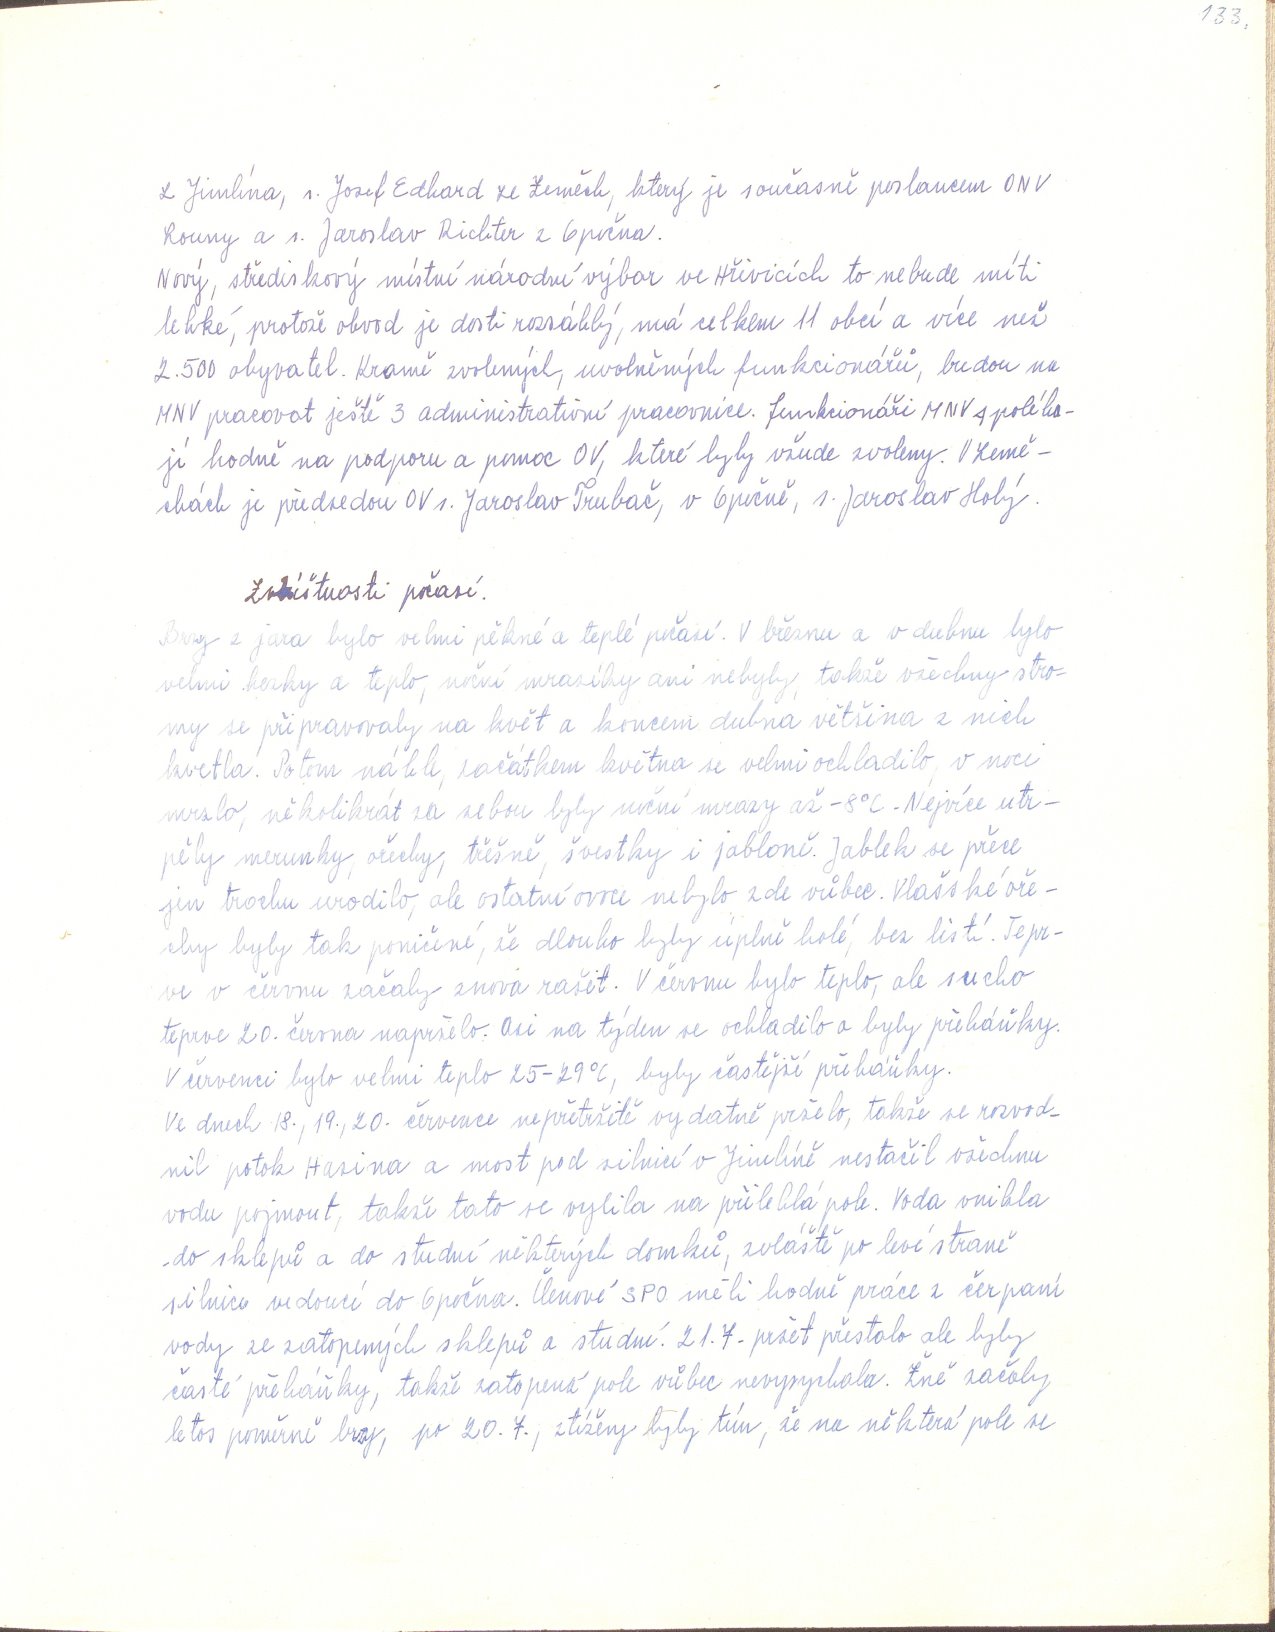 133.
z Jimlína, s. Josef Edhard ze Zeměch, který je současně poslancem ONV
Louny a s. Jaroslav Richter z Opočna.
Nový, střediskový místní národní výbor ve Hřivicích to nebude míti
lehké, protože obvod je dosti rozsáhlý, má celkem 11 obcí a více než
2.500 obyvatel. Kromě zvolených, uvolněných funkcionářů, budou na
MNV pracovat ještě 3 administrativní pracovnice. funkcionáři MNV spoléha-
jí hodně na podporu a pomoc OV, které byly všude zvoleny. V Země-
chách je předsedou OV s. Jaroslav Trubač, v Opočně, s. Jaroslav Holý.
Zvláštnosti počasí.
Brzy z jara bylo velmi pěkné a teplé počasí. V březnu a v dubnu bylo
velmi hezky a teplo, noční mrazíky ani nebyly, takže všechny stro-
my se připravovaly na květ a koncem dubna většina z nich
kvetla. Potom náhle, začátkem května se velmi ochladilo, v noci
mrzlo, několikrát za sebou byly noční mrazy až -8°C. Nejvíce utr-
pěly meruňky, ořechy, třešně, švestky i jabloně. Jablek se přece
jen trochu urodilo, ale ostatní ovoce nebylo zde vůbec. Vlašské oře-
chy byly tak poničené, že dlouho byly úplně holé, bez listí. Tepr-
ve v červnu začaly znova rašit. V červnu bylo teplo, ale sucho
teprve 20. června napršelo. Asi na týden se ochladilo a byly přeháňky.
V červenci bylo velmi teplo 25-29°C, byly častější přeháňky.
Ve dnech 18., 19., 20. července nepřetržitě vydatně pršelo, takže se rozvod-
nil potok Hasina a most pod silnicí v Jimlíně nestačil všechnu
vodu pojmout, takže tato se vylila na přilehlá pole. Voda vnikla
do sklepů a do studní některých domků, zvláště po levé straně
silnice vedoucí do Opočna. Členové SPO měli hodně práce z čerpání
vody ze zatopených sklepů a studní. 21.7. pršet přestalo ale byly
časté přeháňky, takže zatopená pole vůbec nevysychala. Žně začaly
letos poměrně brzy, po 20.7., ztíženy byly tím, že na některá pole se